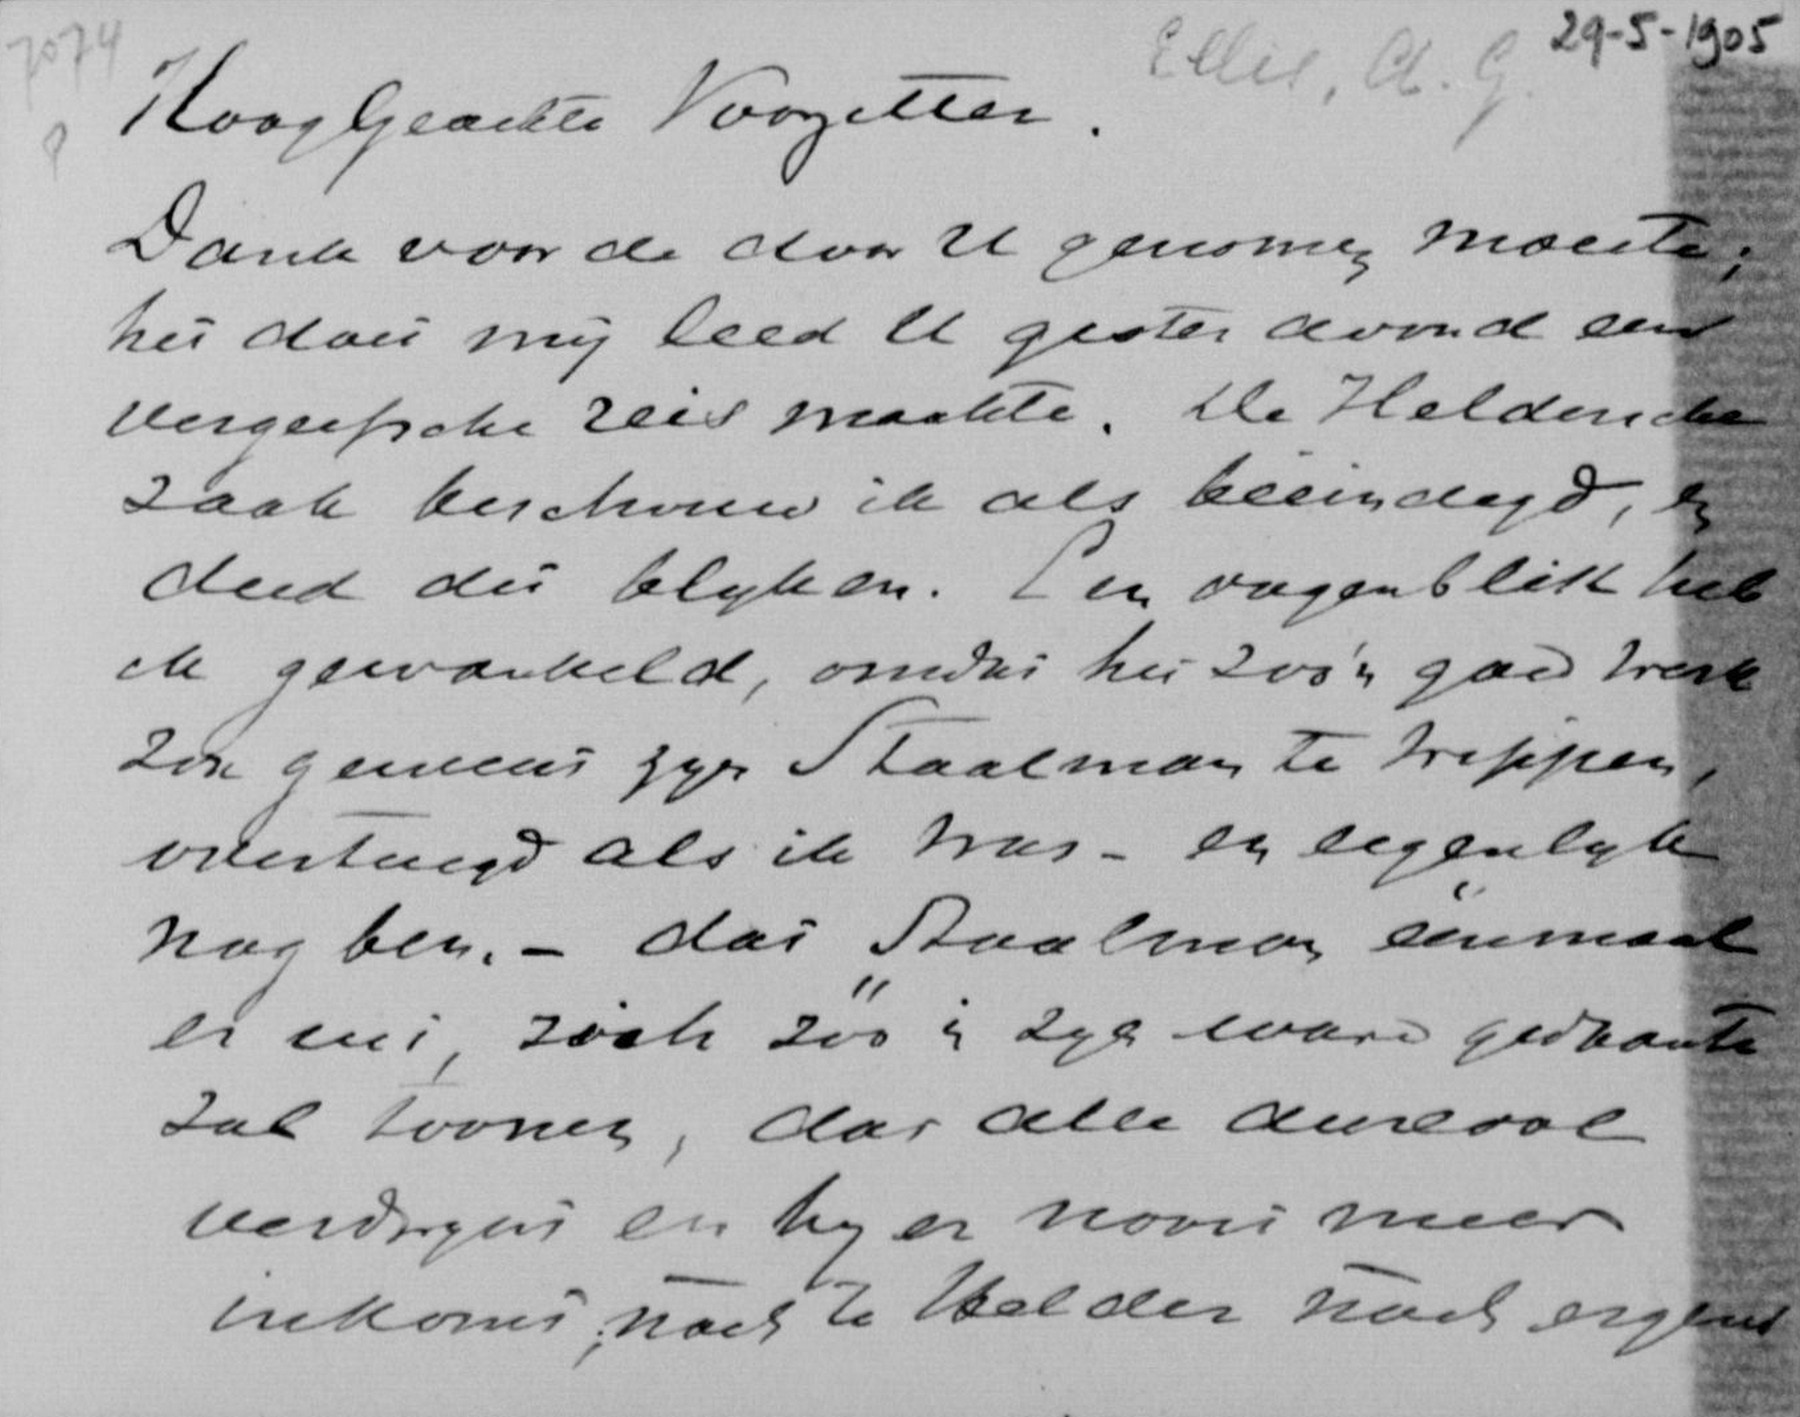 7074
Ellis, A. G.
29-5-1905
HoogGeachte Voorzitter.
Dank voor de door U genomen moeite;
het doet mij leed U gister avond een
vergeefsche reis maakte. De Heldersche
zaak beschouw ik als beëindigd, en
deed dit blyken. Een oogenblik heb
ik gewankeld, omdat het zoo'n goed werk
zou geweest zyn Staalman te wippen,
overtuigd als ik was - en eigenlyk
nog ben. - dat Staalman éénmaal
er uit, zich zoo in zyn ware gedaante
zal toonen, dat alle aureool
verdwynt en hy er nooit meer
inkomt, noch te Helder noch ergens